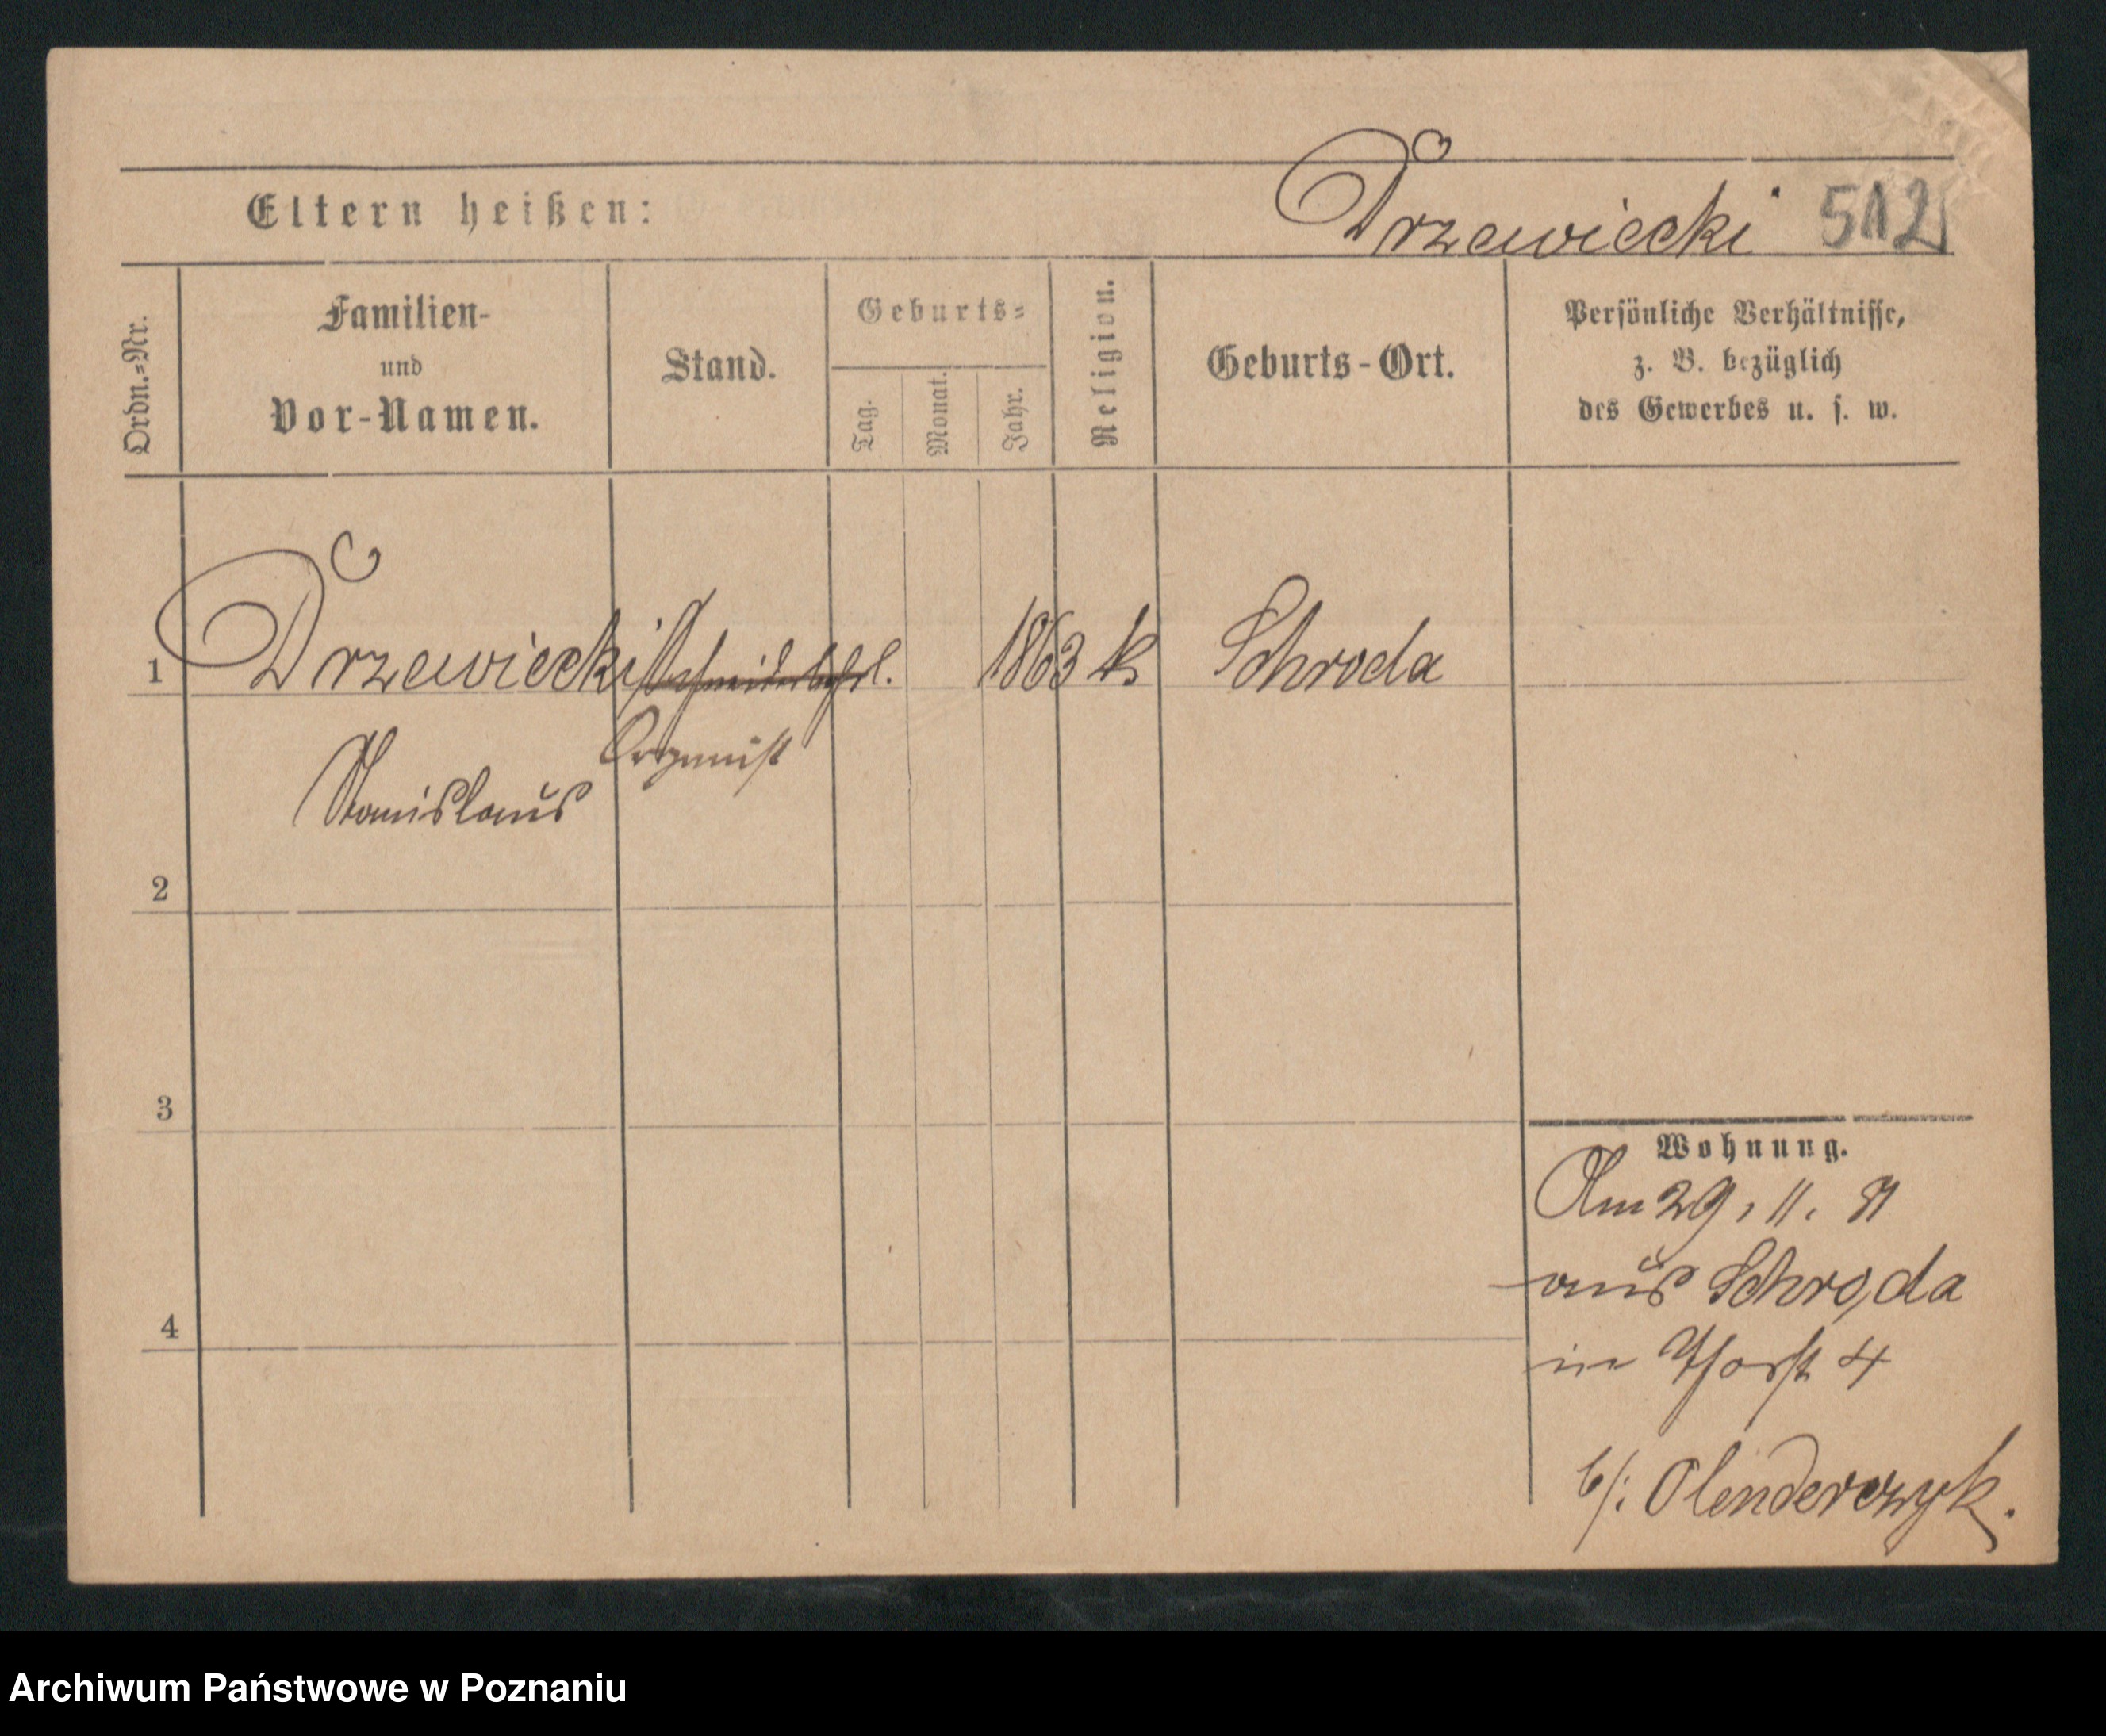 Eltern heißen: Drzewiecki 512
Ordn.=Nr.
Familien-
und
Vor-Namen.
Stand.
Geburts=
Tag.
Monat.
Jahr.
Religion.
Geburts-Ort.
Persönliche Verhältnisse,
z. B. bezüglich
des Gewerbes u. s. w.
1 Drzewiecki 1863 k Schroda
Organist
Stanislaus
2
3
4
Wohnung.
Am 29. 11. 81
aus Schroda
in 4
b/: Olenderczyk.
Archiwum Państwowe w Poznaniu